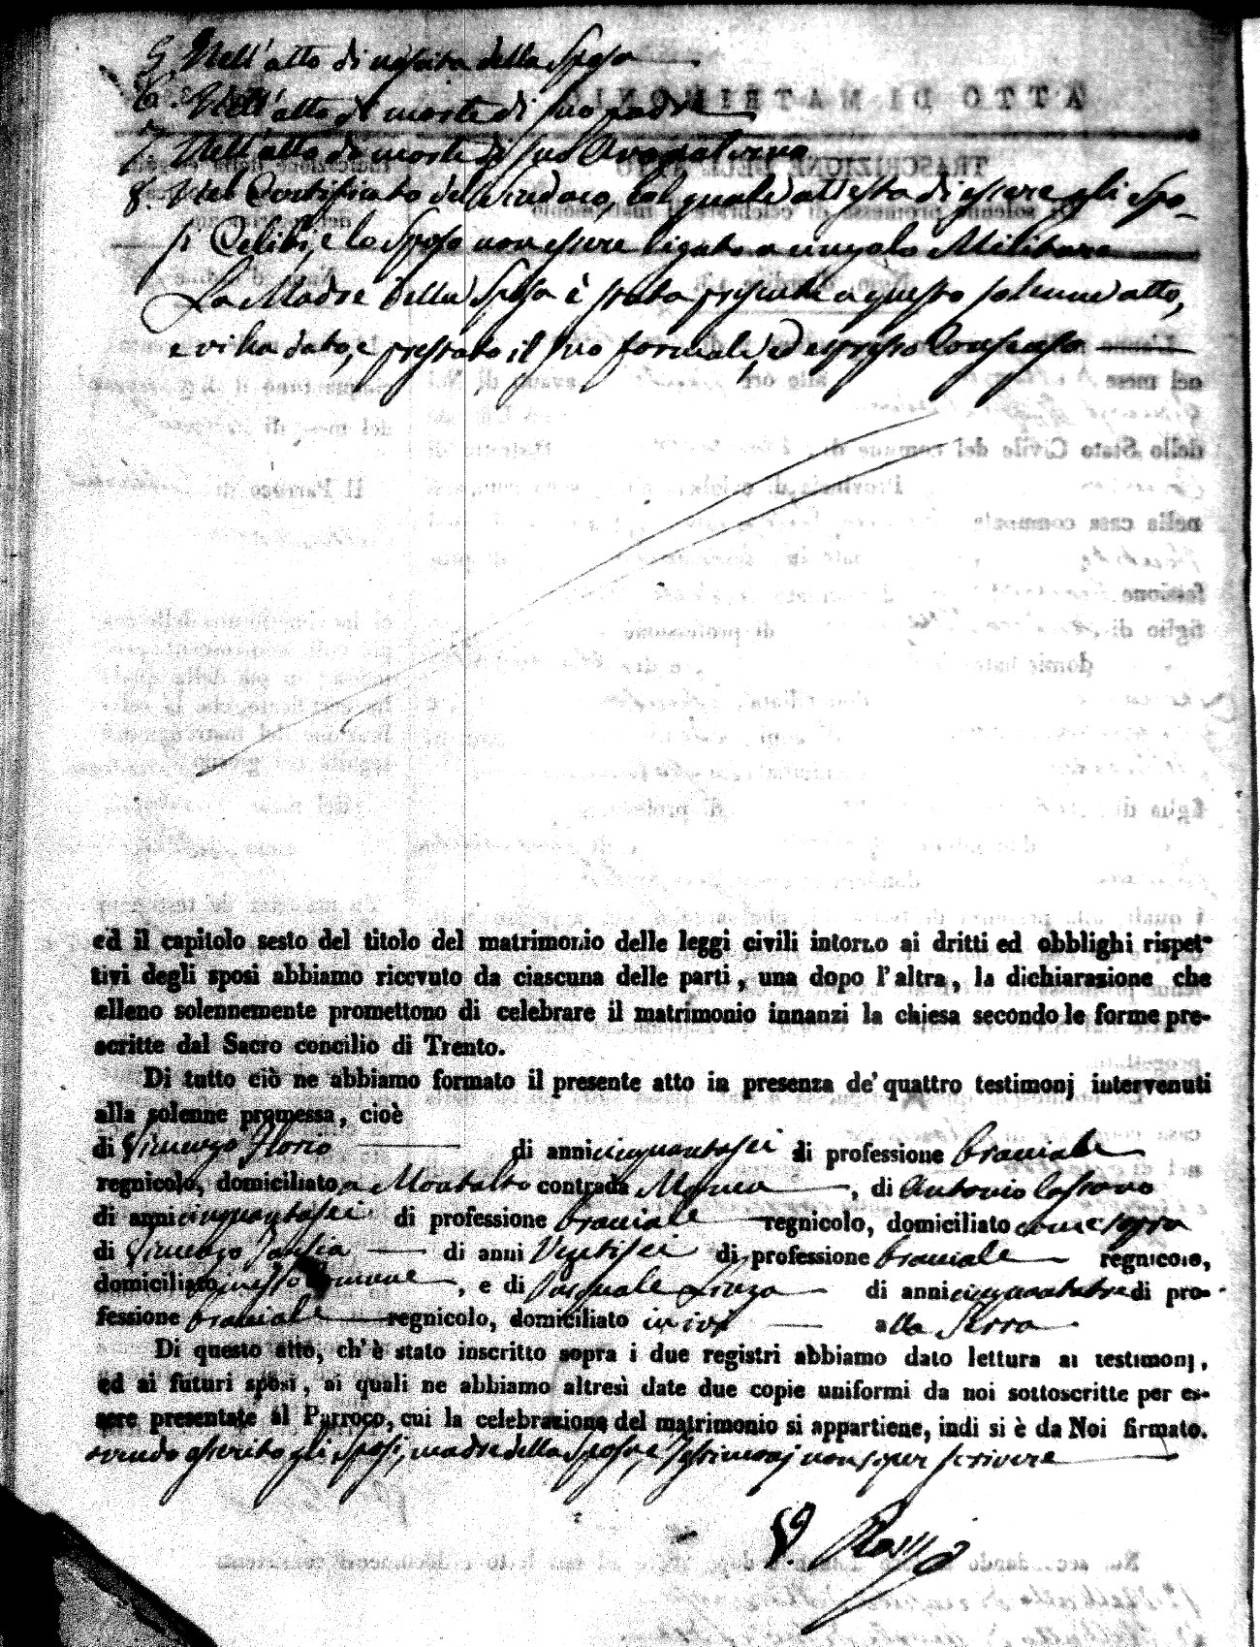 5. Nell'atto di nascita della Sposa
6. Nell'atto di morte di suo padre
7. Nell'atto di morte di suo Avo paterno
8. Nel Certificato del Sindaco, col quale attesta di essere gli Spo-
si Celibi, e lo Sposo non essere ligato a vincolo Militare
La Madre della Sposa è stata presente a questo solenne atto,
e vi ha dato, e prestato il suo formale, ed espresso Consenso
ed il capitolo sesto del titolo del matrimonio delle leggi civili intorno ai dritti ed obblighi rispet-
tivi degli sposi abbiamo ricevuto da ciascuna delle parti, una dopo l'altra, la dichiarazione che
elleno solennemente promettono di celebrare il matrimonio innanzi la chiesa secondo le forme pre-
scritte dal Sacro concilio di Trento.
Di tutto ciò ne abbiamo formato il presente atto in presenza de' quattro testimonj intervenuti
alla solenne promessa, cioè
di Vincenzo Florio di anni cinquantasei di professione bracciale
regnicolo, domiciliato a Montalto contrada , di Antonio Cassano
di anni cinquantasei di professione bracciale regnicolo, domiciliato come sopra
di Vincenzo di anni Ventisei di professione bracciale regnicolo,
domiciliato in questo Comune, e di Pasquale di anni cinquantatre di pro-
fessione bracciale regnicolo, domiciliato in ivi alla Serra
Di questo atto, ch'è stato inscritto sopra i due registri abbiamo dato lettura ai testimonj,
ed ai futuri sposi, ai quali ne abbiamo altresì date due copie uniformi da noi sottoscritte per es-
sere presentate al Parroco, cui la celebrazione del matrimonio si appartiene, indi si è da Noi firmato.
avendo asserito gli Sposi, madre della Sposa, e Testimonj non saper scrivere
Rossi